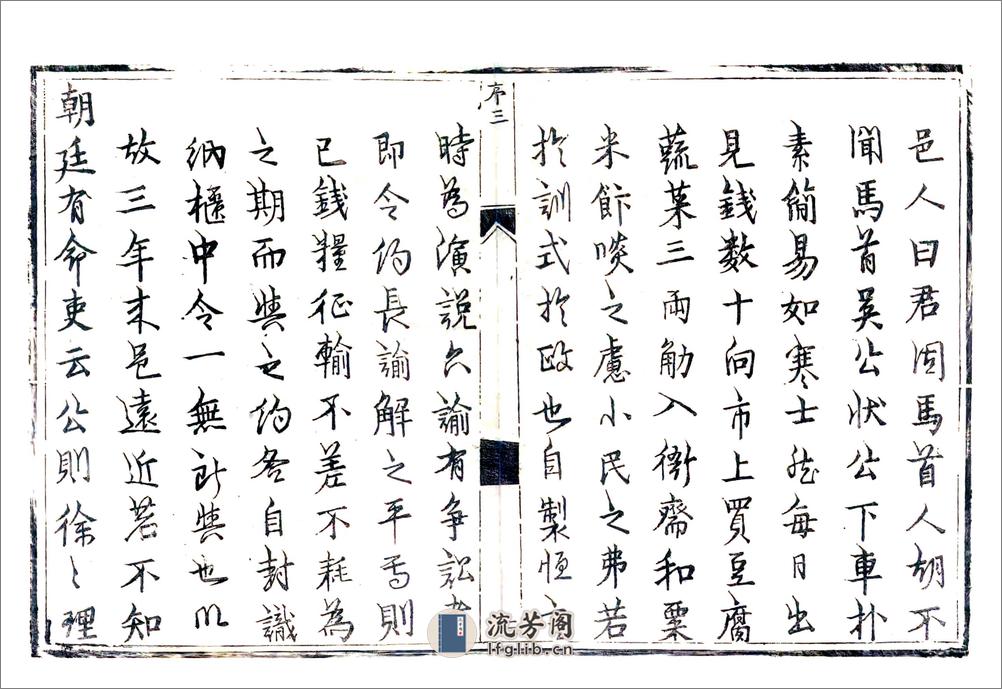 邑人曰君固馬首人胡不
聞馬首吳公狀公下車朴
素簡易如寒士然每日出
見錢數十向市上買豆腐
蔬菜三兩觔入衙齋和粟
米飰啖之慮小民之弗若
扵訓式扵政也自製恒
序三
時為演說六諭有爭訟者
即令約長諭解之平焉則
已錢糧征輸不差不耗為
之期而與之約各自封識
納櫃中令一無所與也以
故三年末邑遠近若不知
朝廷有命吏云公則徐〻理
流芳阁
lfglib.cn